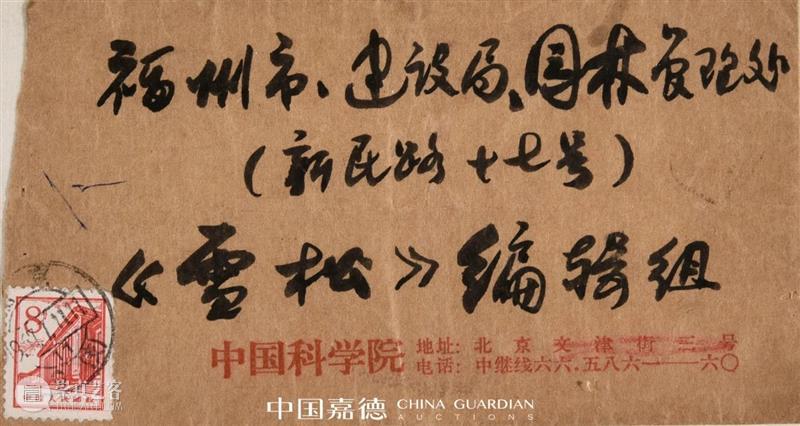 福州市、建设局、园林管理处
(新民路十七号)
《雪松》编辑组
中国科学院
地址: 北京文津街三号
电话: 中继线六六.五八六一——六〇
8
中国嘉德 CHINA GUARDIAN
AUCTIONS